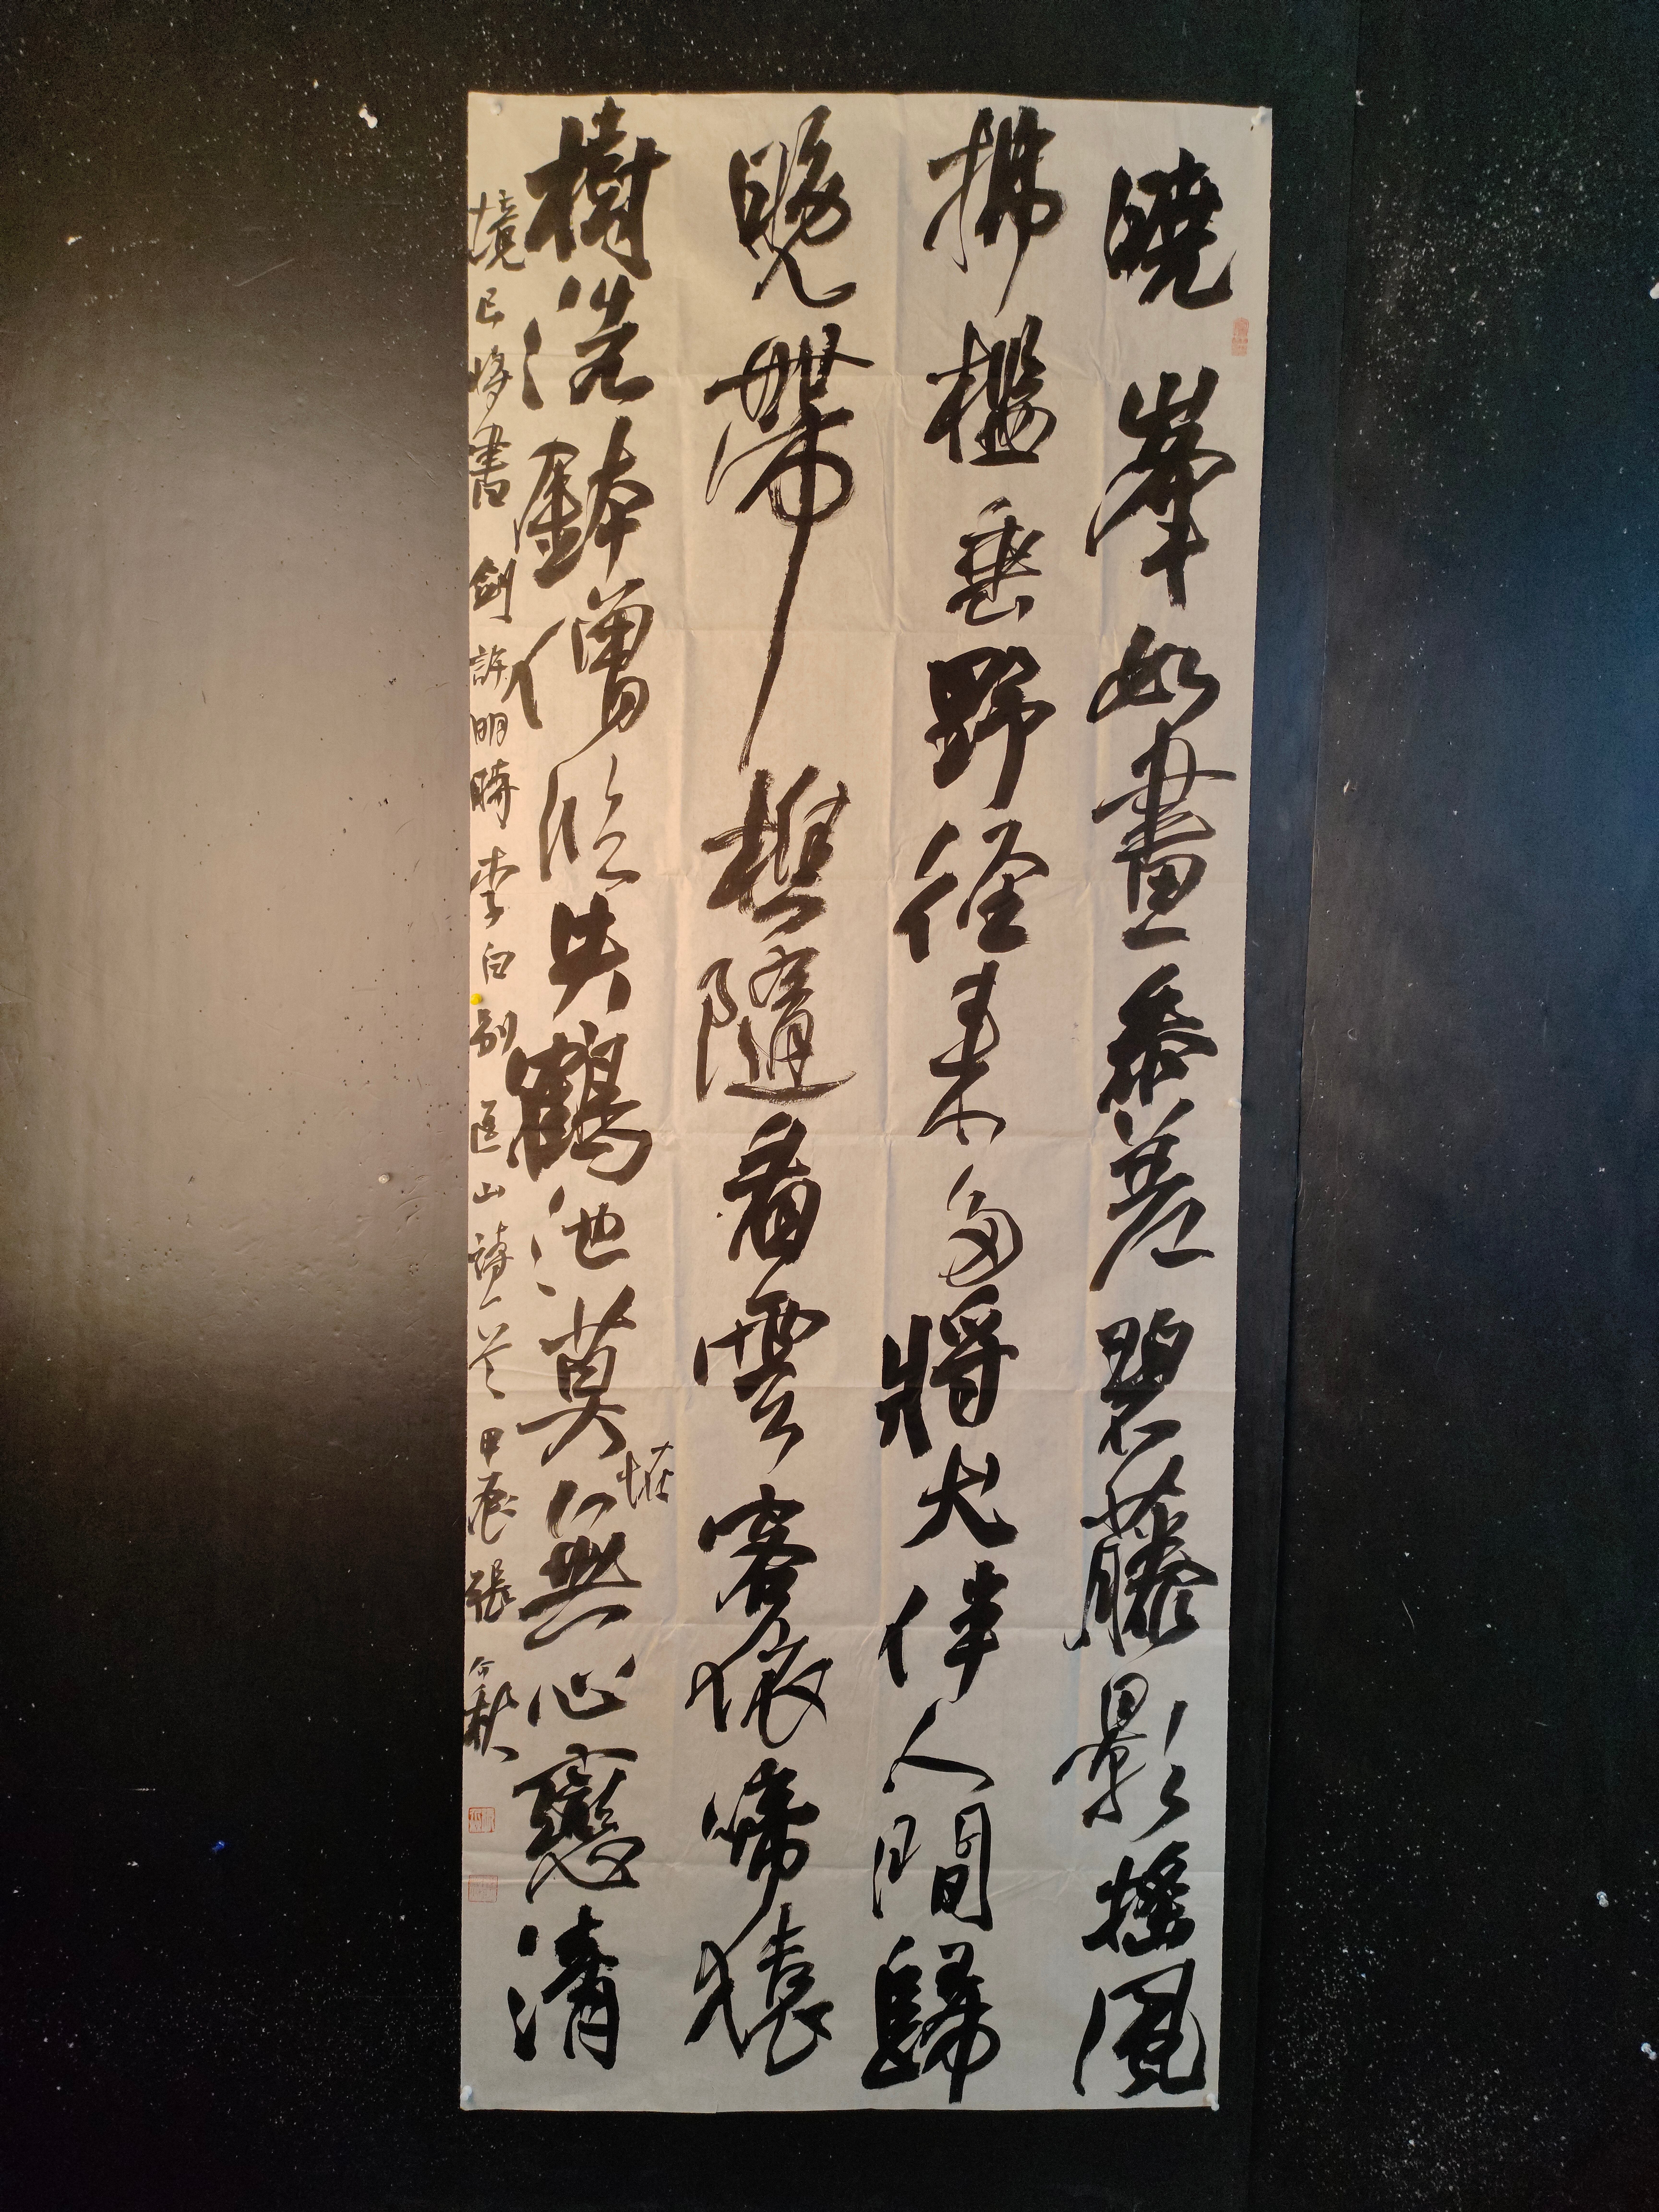 曉峯如畫參差碧藤影搖風
拂檻垂野徑來多將犬伴人間歸
晚帶樵隨看雲客依啼猿
樹洗鉢僧臨失鶴池莫怪無心戀清
境已將書劍許明時李白別匡山詩一首甲辰張